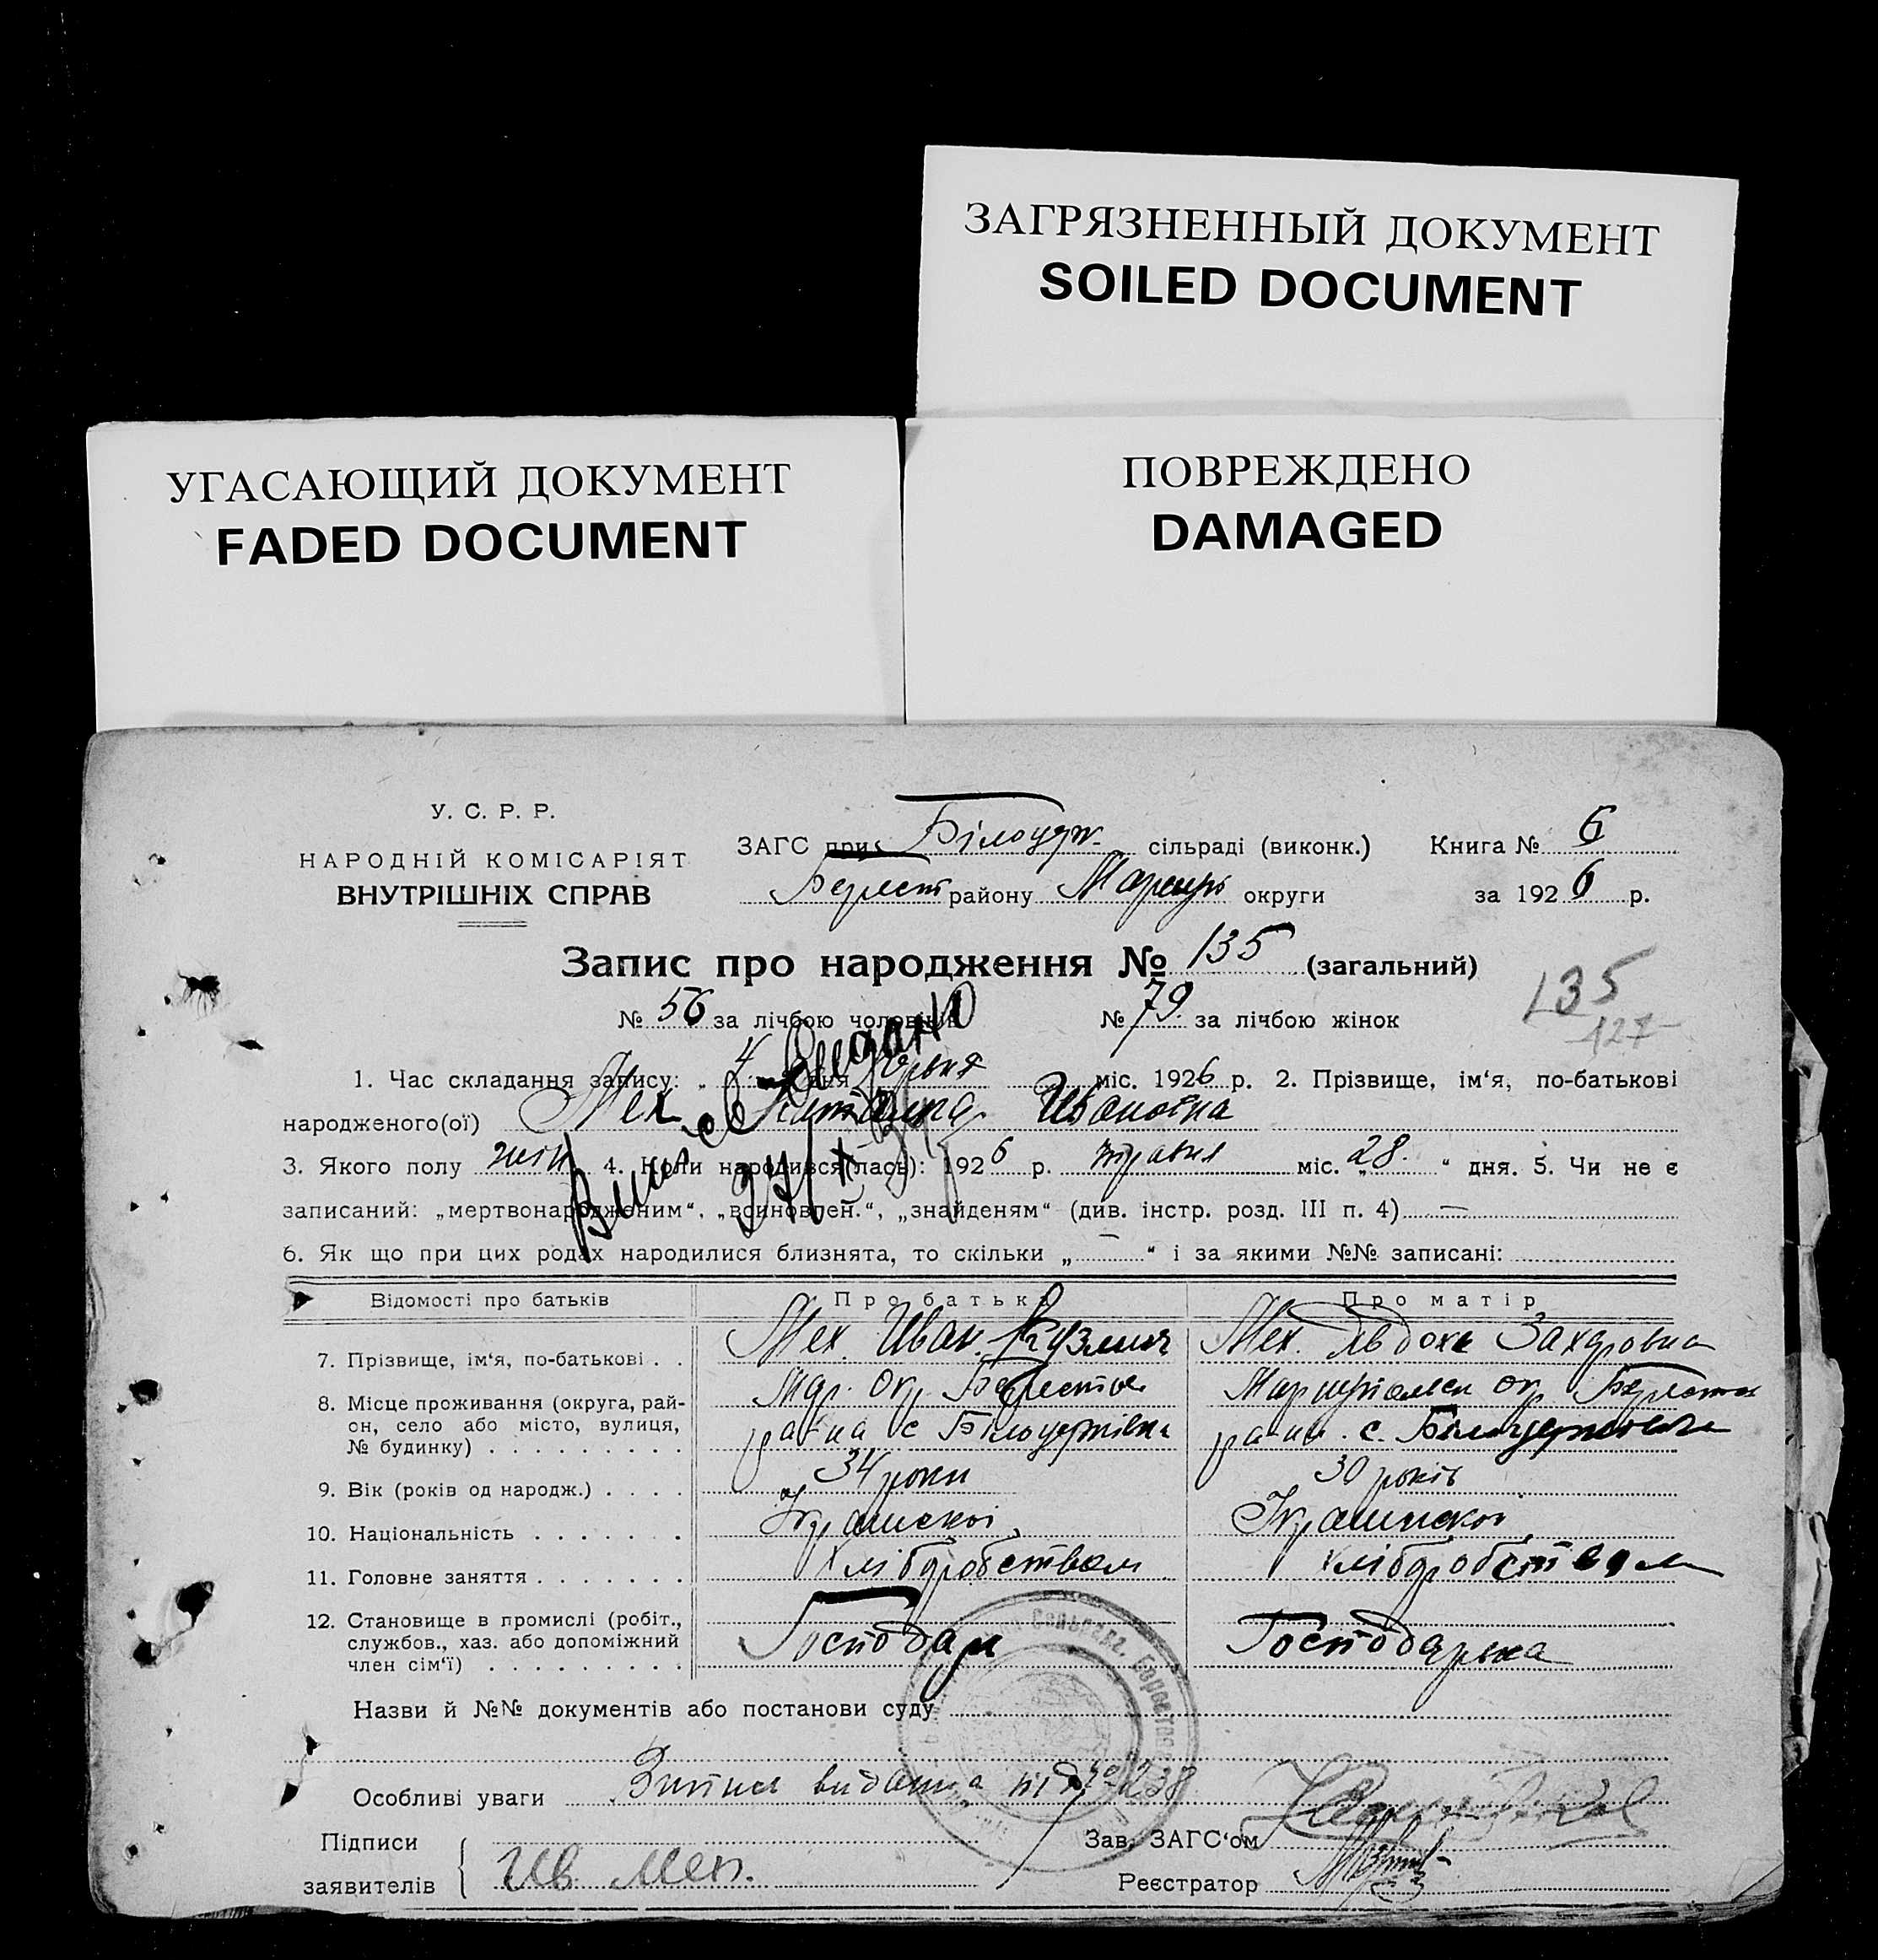 ЗАГРЯЗНЕННЫЙ ДОКУМЕНТ
SOILED DOCUMENT
УГАСАЮЩИЙ ДОКУМЕНТ
FADED DOCUMENT
ПОВРЕЖДЕНО
DAMAGED
У. С. Р. Р.
НАРОДНІЙ КОМІСАРІЯТ
ВНУТРІШНІХ СПРАВ
ЗАГС при Білоцерк. сільраді (виконк.) Книга № 6
Берест району Маріуп округи за 1926 р.
Запис про народження № 135 (загальний)
135
№ 56 за лічбою чоловіків № 79 за лічбою жінок
127
1. Час складання запису: „ 4 дня міс. 1926 р. 2. Прізвище, ім‘я, по-батькові
народженого(ої) Мех Ивановна
3. Якого полу жін 4. Коли народився(лась): 1926 р. травня міс. „ 28. “ дня. 5. Чи не є
записаний: „мертвонародженим“, „всиновлен.“, „знайденям“ (див. інстр. розд. III п. 4) —
6. Як що при цих родах народилися близнята, то скільки „ — “ і за якими №№ записані:
Випис видано
Відомості про батьків Про батька Про матір
7. Прізвище, ім‘я, по-батькові . . Мех. Иван. Кузмич Мех. Явдоха Захаровна
8. Місце проживання (округа, рай- Мар. Окр. Берестов Маріупольск окр Берестов
он, село або місто, вулиця, района с Білоцерківка район. с. Білоцерковка
№ будинку) . . . . . . . . .
9. Вік (років од народж.) . . . . 34 роки 30 років
10. Національність . . . . . . . Украинской Украинской
11. Головне заняття . . . . . . . хліборобством хліборобством
12. Становище в промислі (робіт.,
службов., хаз. або допоміжний Господар Господарька
член сім‘ї) . . . . . . . . .
Назви й №№ документів або постанови суду
Особливі уваги Випись видана під № 238
Підписи
заявителів Ив Мех.
Зав. ЗАГС‘ом
Реєстратор